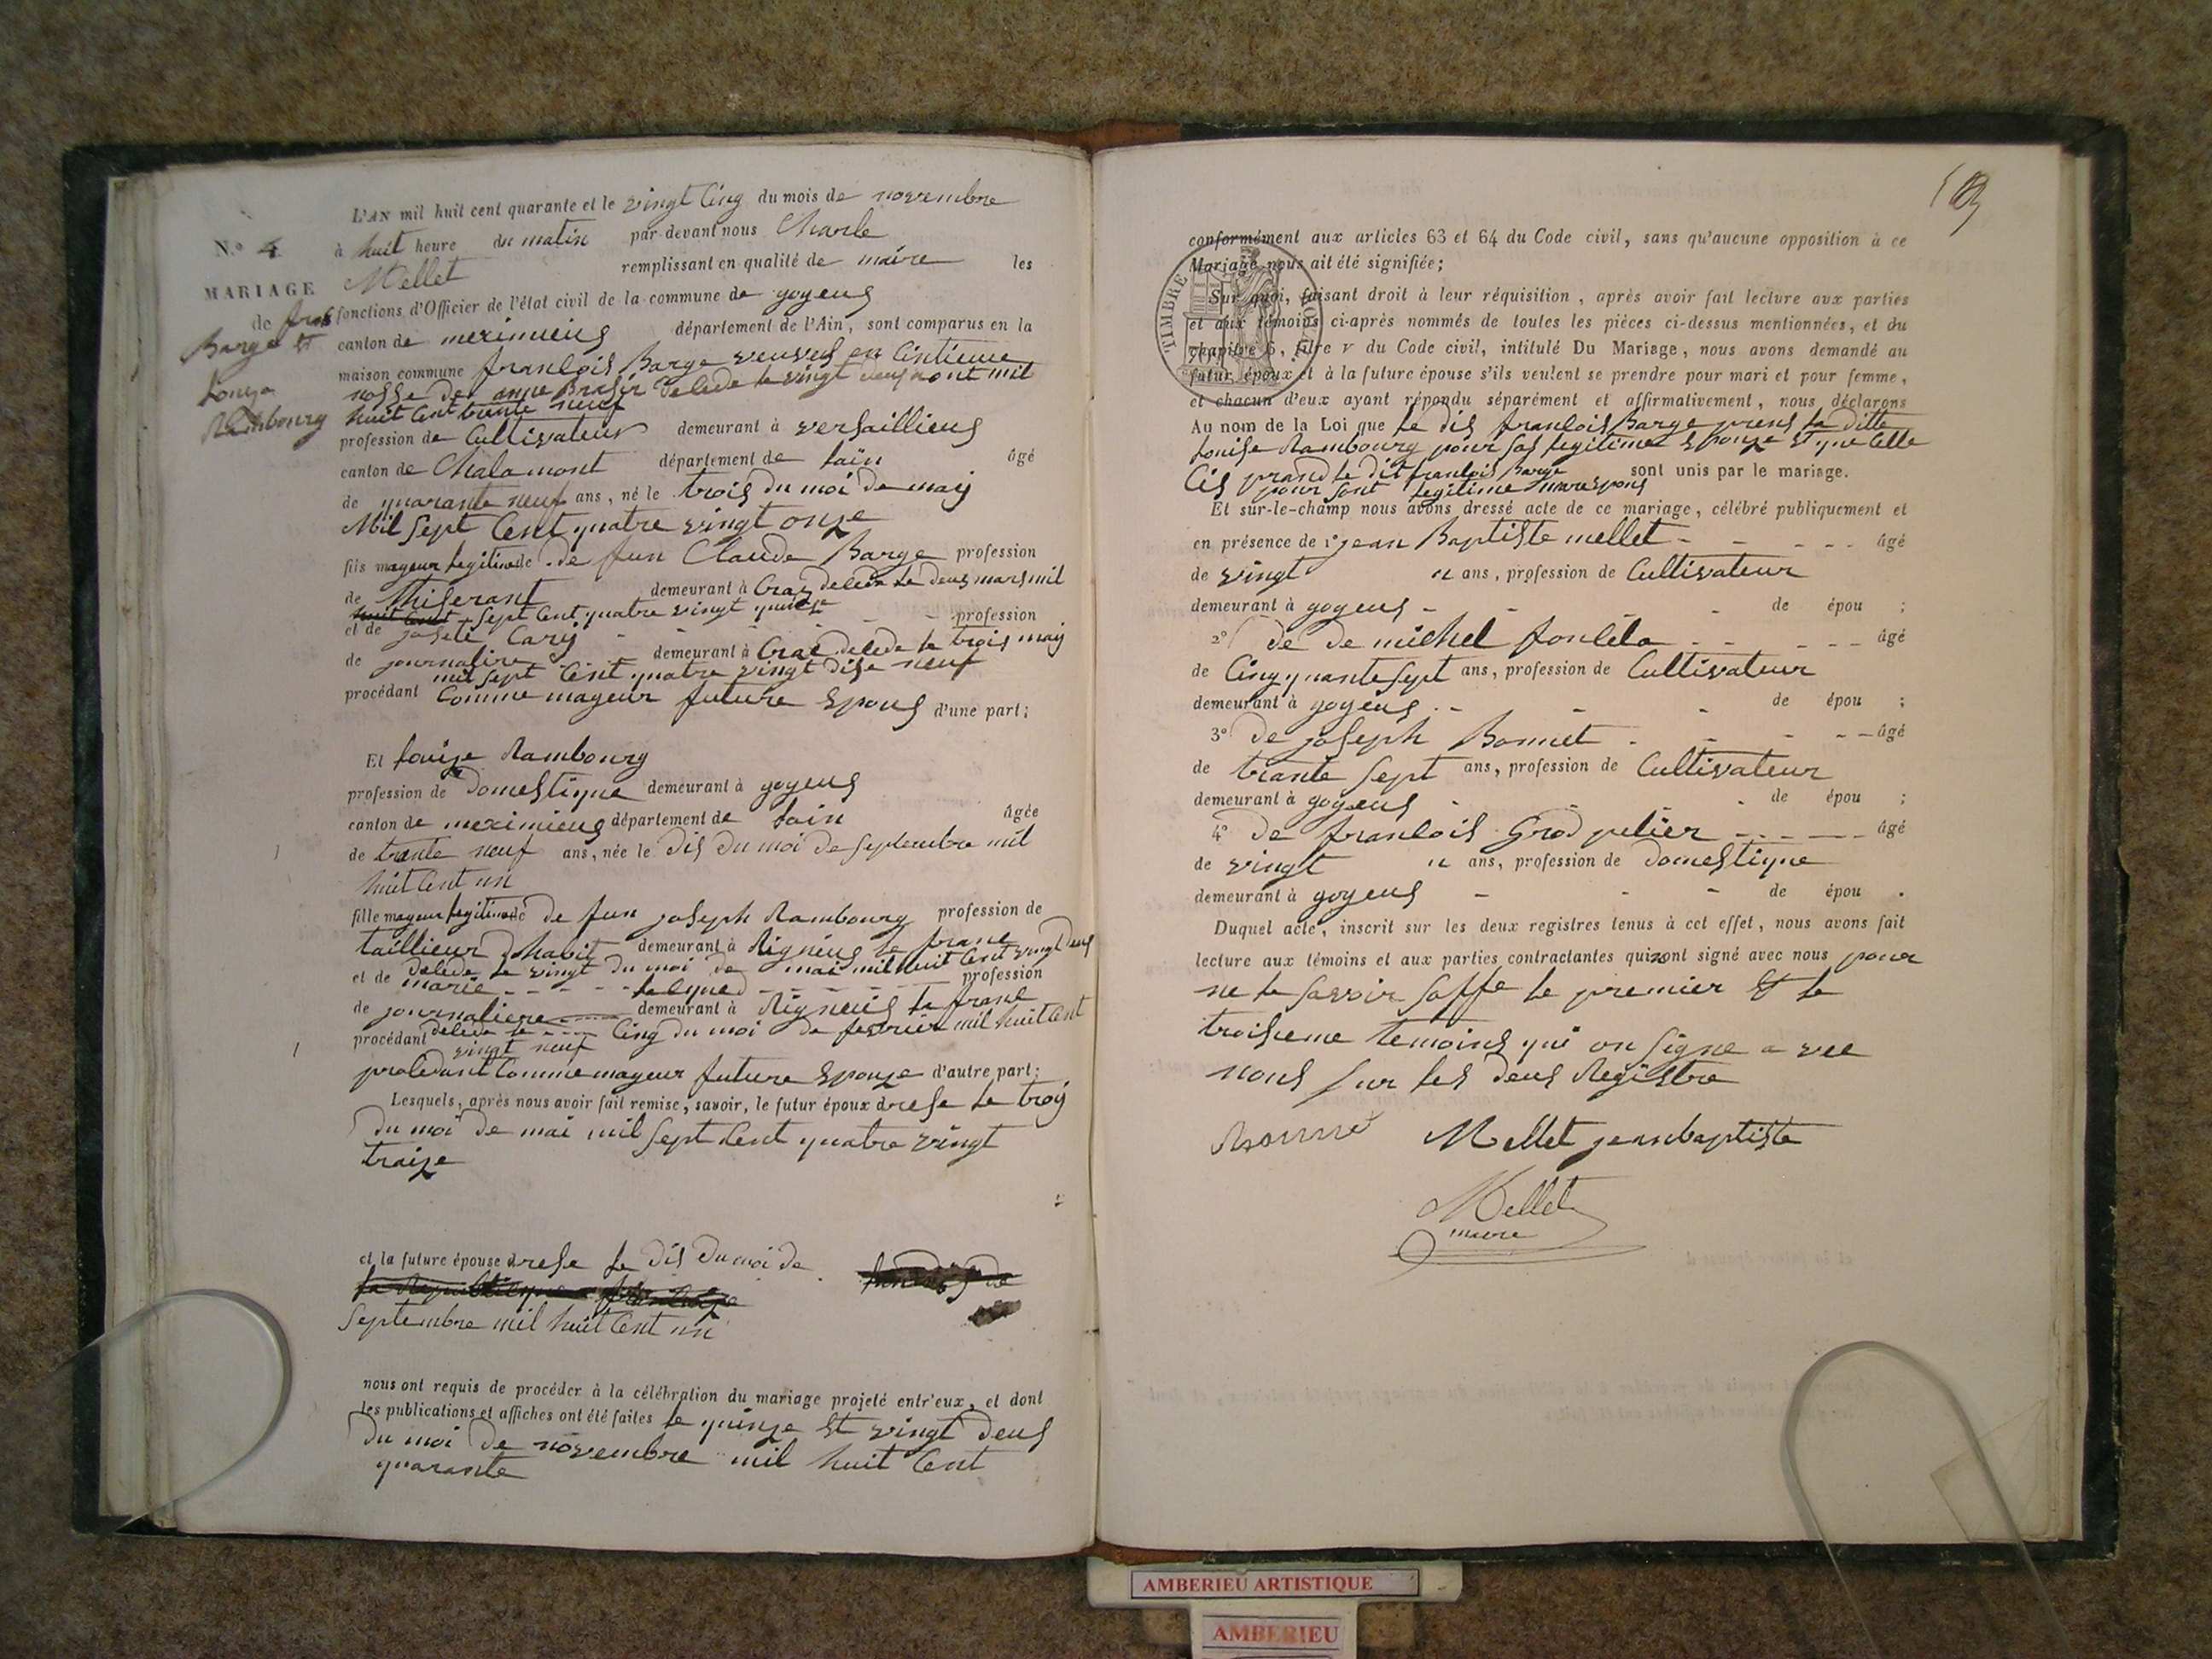 L'AN mil huit cent quarante et le vingt Cinq du mois de novembre
N.o 4 à huit heure du matin par-devant nous Charle
Mellet remplissant en qualité de maire les
MARIAGE
fonctions d'Officier de l'état civil de la commune de goyeus
de fras
Barge et
Louza
Rambourg
canton de meximieus département de l'Ain, sont comparus en la
maison commune franlois Barge veuves en
nosse de anne Brasir delede le vingt deus aout mil
huit Cent trante neuf
profession de Cultivateur demeurant à versaillieus
canton de Chalamont département de lain âgé
de quarante neuf ans, né le trois du moi de may
Mil sept Cent quatre vingt onze
fils mayeur legitime de de fun Claude Barge profession
de thiserant demeurant à Cras delede le deus mars mil
sept Cent quatre vingt quinze
et de josete Cary profession
de journalire demeurant à Cras delede le trois may
mil sept Cent quatre vingt dise neuf
procédant Comme mayeur future Epous d'une part;
Et Louize Rambourg
profession de Domestique demeurant à goyeus
canton de meximieus département de lain âgée
de trante neuf ans, née le dis du moi de septembre mil
huit Cent un
fille mayeur legitime de de fun joseph Rambourg profession de
taillieur dhabit demeurant à Rignieus le franc
delede le vingt du moi de mai mil huit Cent vingt deus
et de marie profession
de journaliere demeurant à Rigneus le franc
delede le Cinq du moi de fevrier mil huit Cent
procédant vingt neuf
proledant Comme mayeur future Epouze d'autre part;
Lesquels, après nous avoir fait remise, savoir, le futur époux drese le troy
du moi de mai mil sept Cent quatre vingt
traize
et la future épouse drese le dis du moi de
septembre mil huit Cent un
nous ont requis de procéder à la célébration du mariage projeté entr'eux, et dont
les publications et affiches ont été faites le quinze et vingt deus
du moi de novembre mil huit Cent
quarante
conformément aux articles 63 et 64 du Code civil, sans qu'aucune opposition à ce
Mariage nous ait été signifiée;
TIMBRE ROYAL
Sur quoi, faisant droit à leur réquisition, après avoir fait lecture aux parties
et aux témoins ci-après nommés de toutes les pièces ci-dessus mentionnées, et du
chapitre 6, titre v du Code civil, intitulé Du Mariage, nous avons demandé au
futur époux et à la future épouse s'ils veulent se prendre pour mari et pour femme,
et chacun d'eux ayant répondu séparément et affirmativement, nous déclarons
Au nom de la Loi que le dis franlois Barge prens la ditte
Louise Rambourg pour sas legitime Epouze et que Celle
Cis prand le dit franlois Barge sont unis par le mariage.
pour sont legitime mare
Et sur-le-champ nous avons dressé acte de ce mariage, célébré publiquement et
en présence de 1° jean Baptiste mellet âgé
de vingt ans, profession de Cultivateur
demeurant à goyeus de épou ;
2° de de michel fonlela âgé
de Cinqquante sept ans, profession de Cultivateur
demeurant à goyeus de épou ;
3° de joseph Bonnet âgé
de trante sept ans, profession de Cultivateur
demeurant à goyeus de épou ;
4° de franlois âgé
de vingt ans, profession de domestique
demeurant à goyeus de épou .
Duquel acte, inscrit sur les deux registres tenus à cet effet, nous avons fait
lecture aux témoins et aux parties contractantes qui nont signé avec nous pour
ne le savoir saffe le premier et le
troisieme temoins qui on signe a vec
nous sur les deus Registre
Bonnet Mellet jeanbaptiste
Mellet
maire
AMBERIEU ARTISTIQUE
AMBERIEU